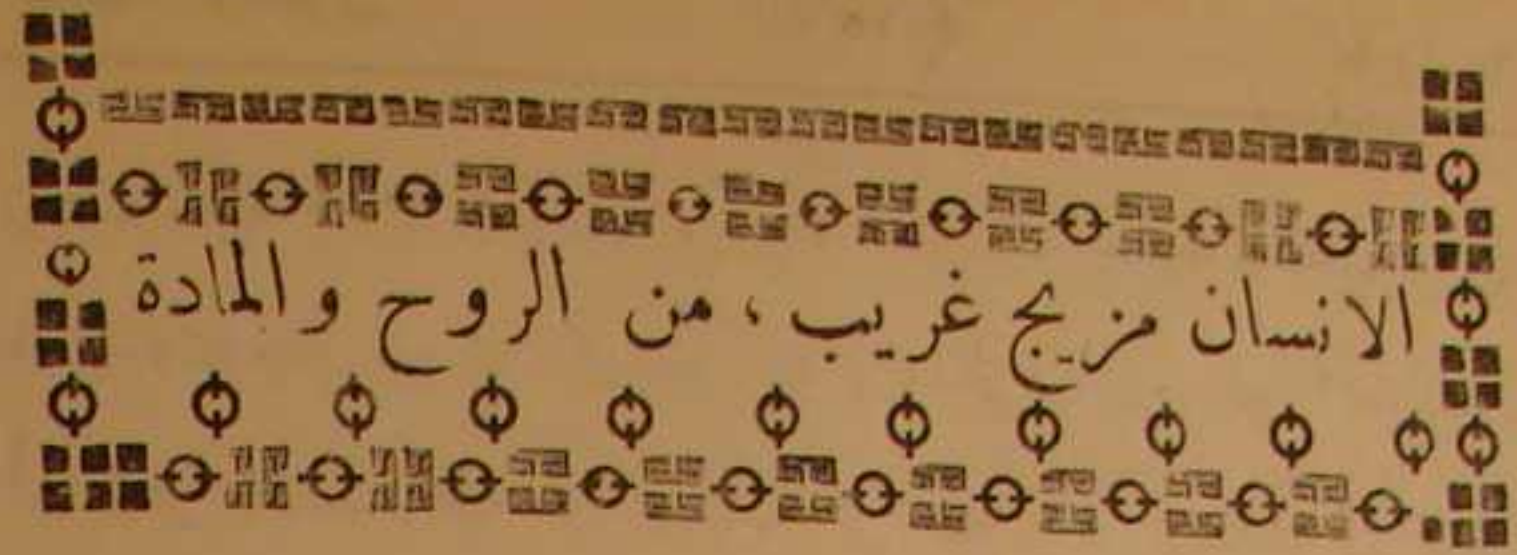 الانسان مزيج غريب ، من الروح والمادة